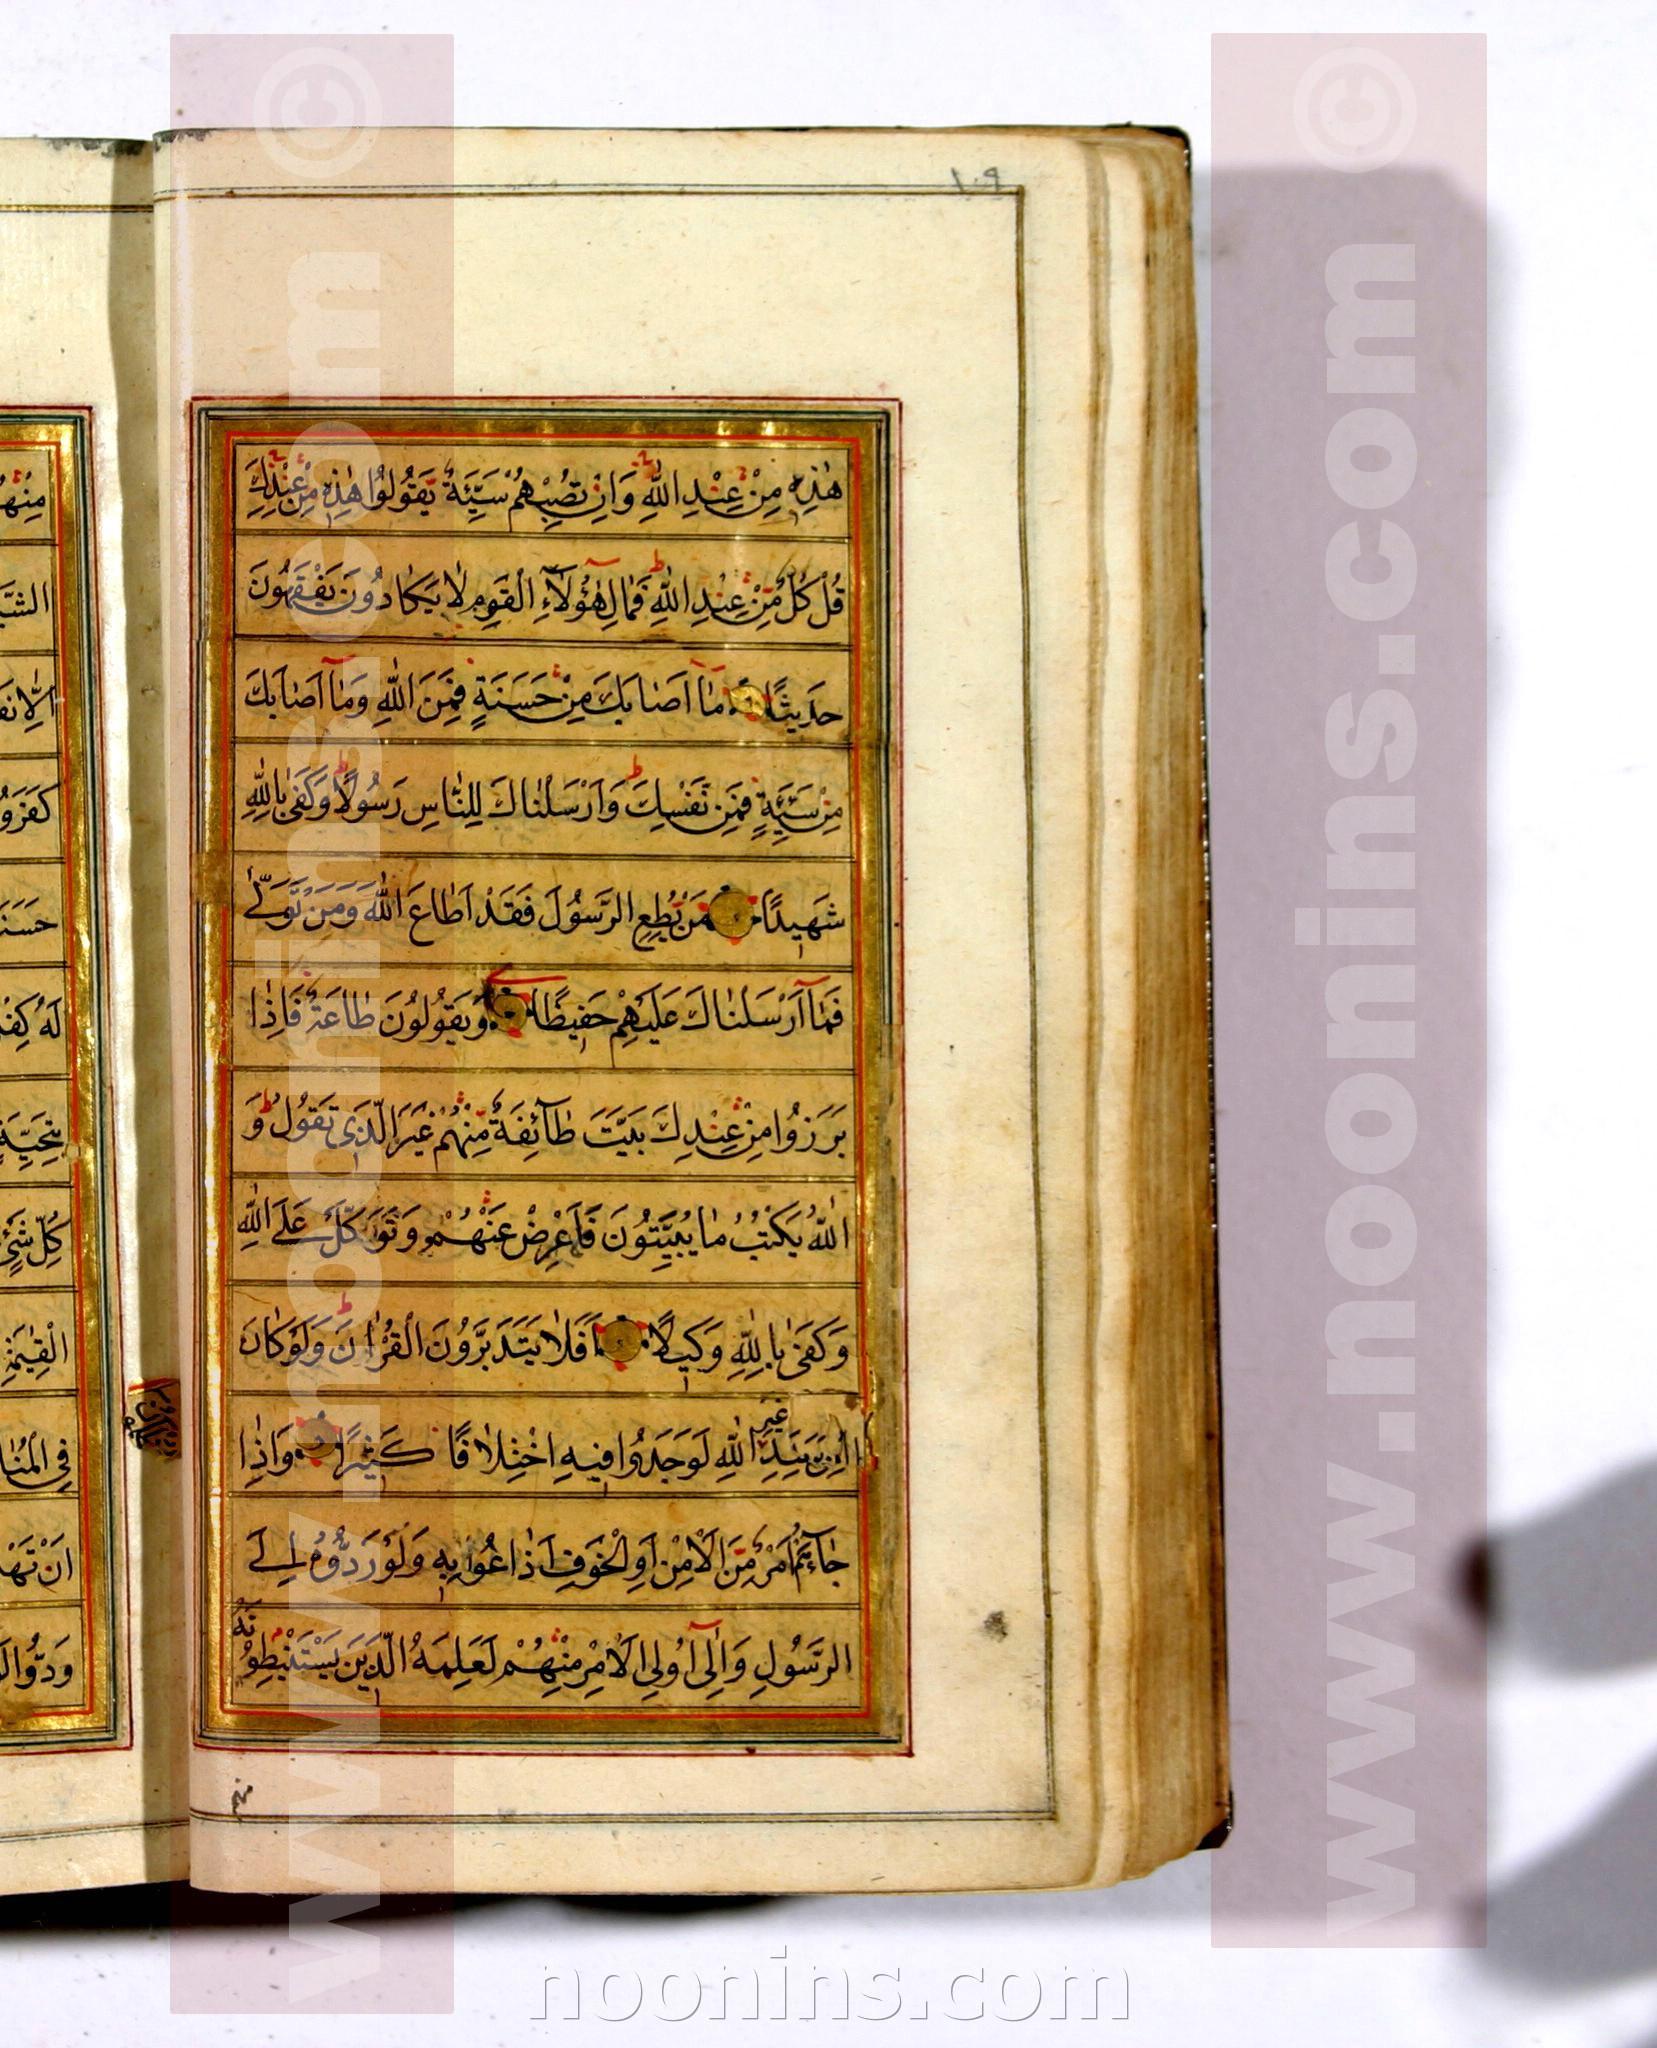 ١٠٩
هٰذِهِ مِنْ عِنْدِ اللّٰهِ وَاِنْ تُصِبْهُمْ سَيِّئَةٌ يَقُولُوا هٰذِهِ مِنْ عِنْدِكَ
قُلْ كُلٌّ مِّنْ عِنْدِ اللّٰهِ فَمَالِ هٰٓؤُلَآءِ الْقَوْمِ لَا يَكَادُونَ يَفْقَهُونَ
حَدِيثًا مَآ اَصَابَكَ مِنْ حَسَنَةٍ فَمِنَ اللّٰهِ وَمَآ اَصَابَكَ
مِنْ سَيِّئَةٍ فَمِنْ نَّفْسِكَ وَاَرْسَلْنَاكَ لِلنَّاسِ رَسُولًا وَكَفٰى بِاللّٰهِ
شَهِيدًا مَنْ يُطِعِ الرَّسُولَ فَقَدْ اَطَاعَ اللّٰهَ وَمَنْ تَوَلّٰى
فَمَآ اَرْسَلْنَاكَ عَلَيْهِمْ حَفِيظًا وَيَقُولُونَ طَاعَةٌ فَاِذَا
بَرَزُوا مِنْ عِنْدِكَ بَيَّتَ طَآئِفَةٌ مِّنْهُمْ غَيْرَ الَّذِى تَقُولُ وَ
اللّٰهُ يَكْتُبُ مَا يُبَيِّتُونَ فَاَعْرِضْ عَنْهُمْ وَتَوَكَّلْ عَلَى اللّٰهِ
وَكَفٰى بِاللّٰهِ وَكِيلًا اَفَلَا يَتَدَبَّرُونَ الْقُرْاٰنَ وَلَوْ كَانَ
غَيْرِ
اللّٰهِ لَوَجَدُوا فِيهِ اخْتِلَافًا كَثِيرًا وَاِذَا
جَآءَهُمْ اَمْرٌ مِّنَ الْاَمْنِ اَوِ الْخَوْفِ اَذَاعُوا بِهِ وَلَوْ رَدُّوهُ اِلَى
الرَّسُولِ وَاِلٰٓى اُولِى الْاَمْرِ مِنْهُمْ لَعَلِمَهُ الَّذِينَ يَسْتَنْبِطُو
نَهُ
منهم
كُلِّ شَىْءٍ
اَنْ تَهْد
www.noonins.com ©
www.noonins.com ©
noonins.com